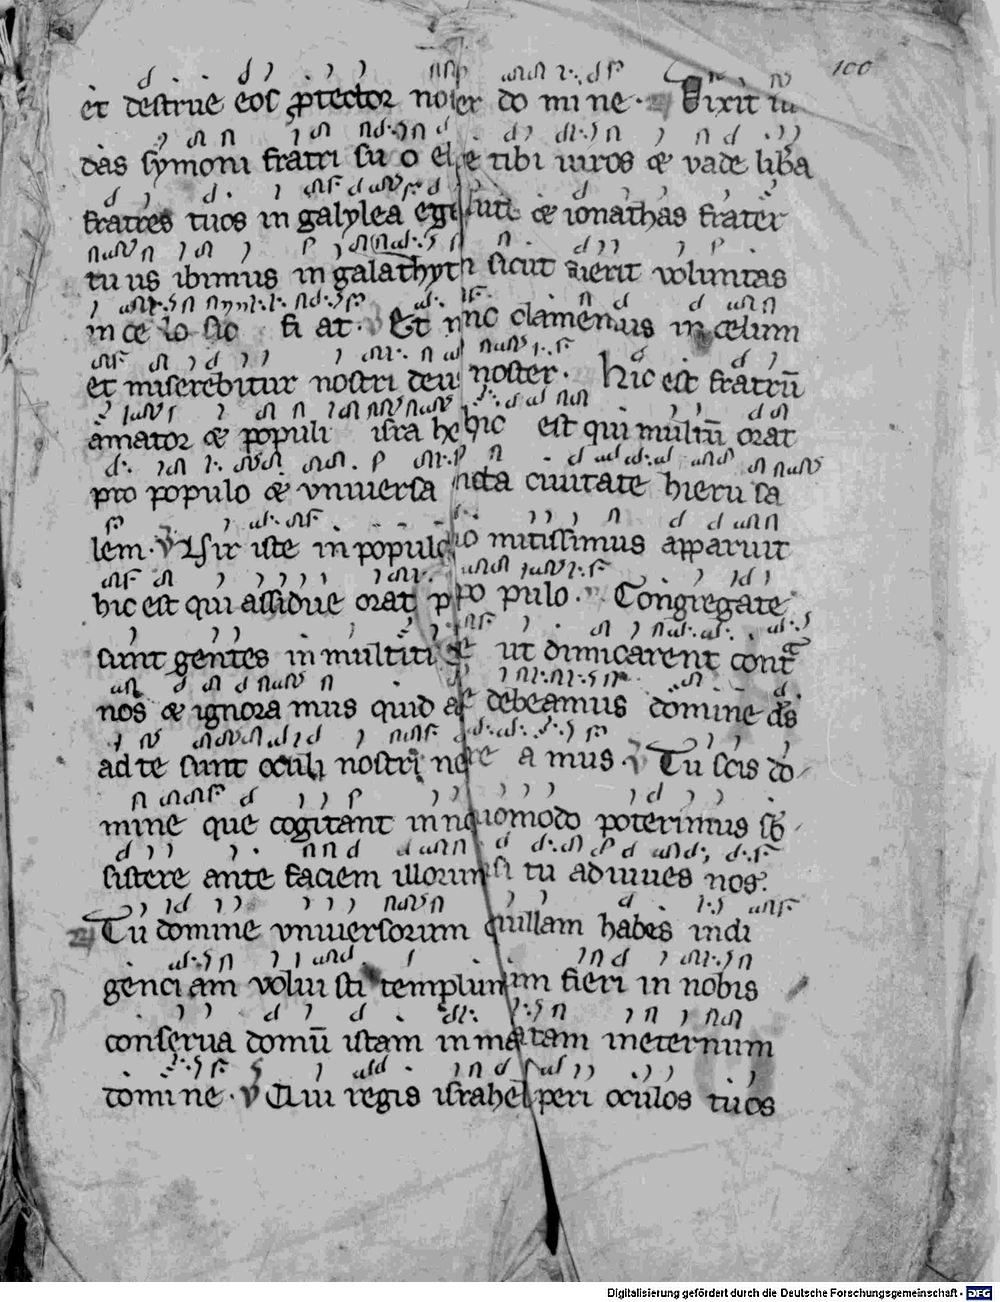 100
et destrue eos ꝓtector noster do mi ne · Dixit iu
das symoni fratri su o elige tibi uiros & uade liba
fratres tuos in galylea ego autē & ionathas frater
tu us ibimus in galathyth sicut uierit uoluntas
in ce lo sic fi at · Et nunc clamemus in celum
et miserebitur nostri deus noster · Hic est fratrū
amator & populi isra hel hic est qui multū orat
pro populo & uniuersa sancta ciuitate hieru sa
lem · V Uir iste in populo suo mitissimus apparuit
hic est qui assidue orat pro po pulo · Congregate
sunt gentes in multitudine ut dimicarent contra
nos & ignora mus quid agere debeamus domine ds
ad te sunt oculi nostri ne pere a mus · V Tu scis do
mine que cogitant in nos quomodo poterimus sb
sistere ante faciem illorum nisi tu adiuues nos
Tu domine uniuersorum qui nullam habes indi
genci am uolui sti templum tuum fieri in nobis
conserua domū istam inmaculatam ineternum
domi ne · V Qui regis israhel aperi oculos tuos
Digitalisierung gefördert durch die Deutsche Forschungsgemeinschaft - DFG